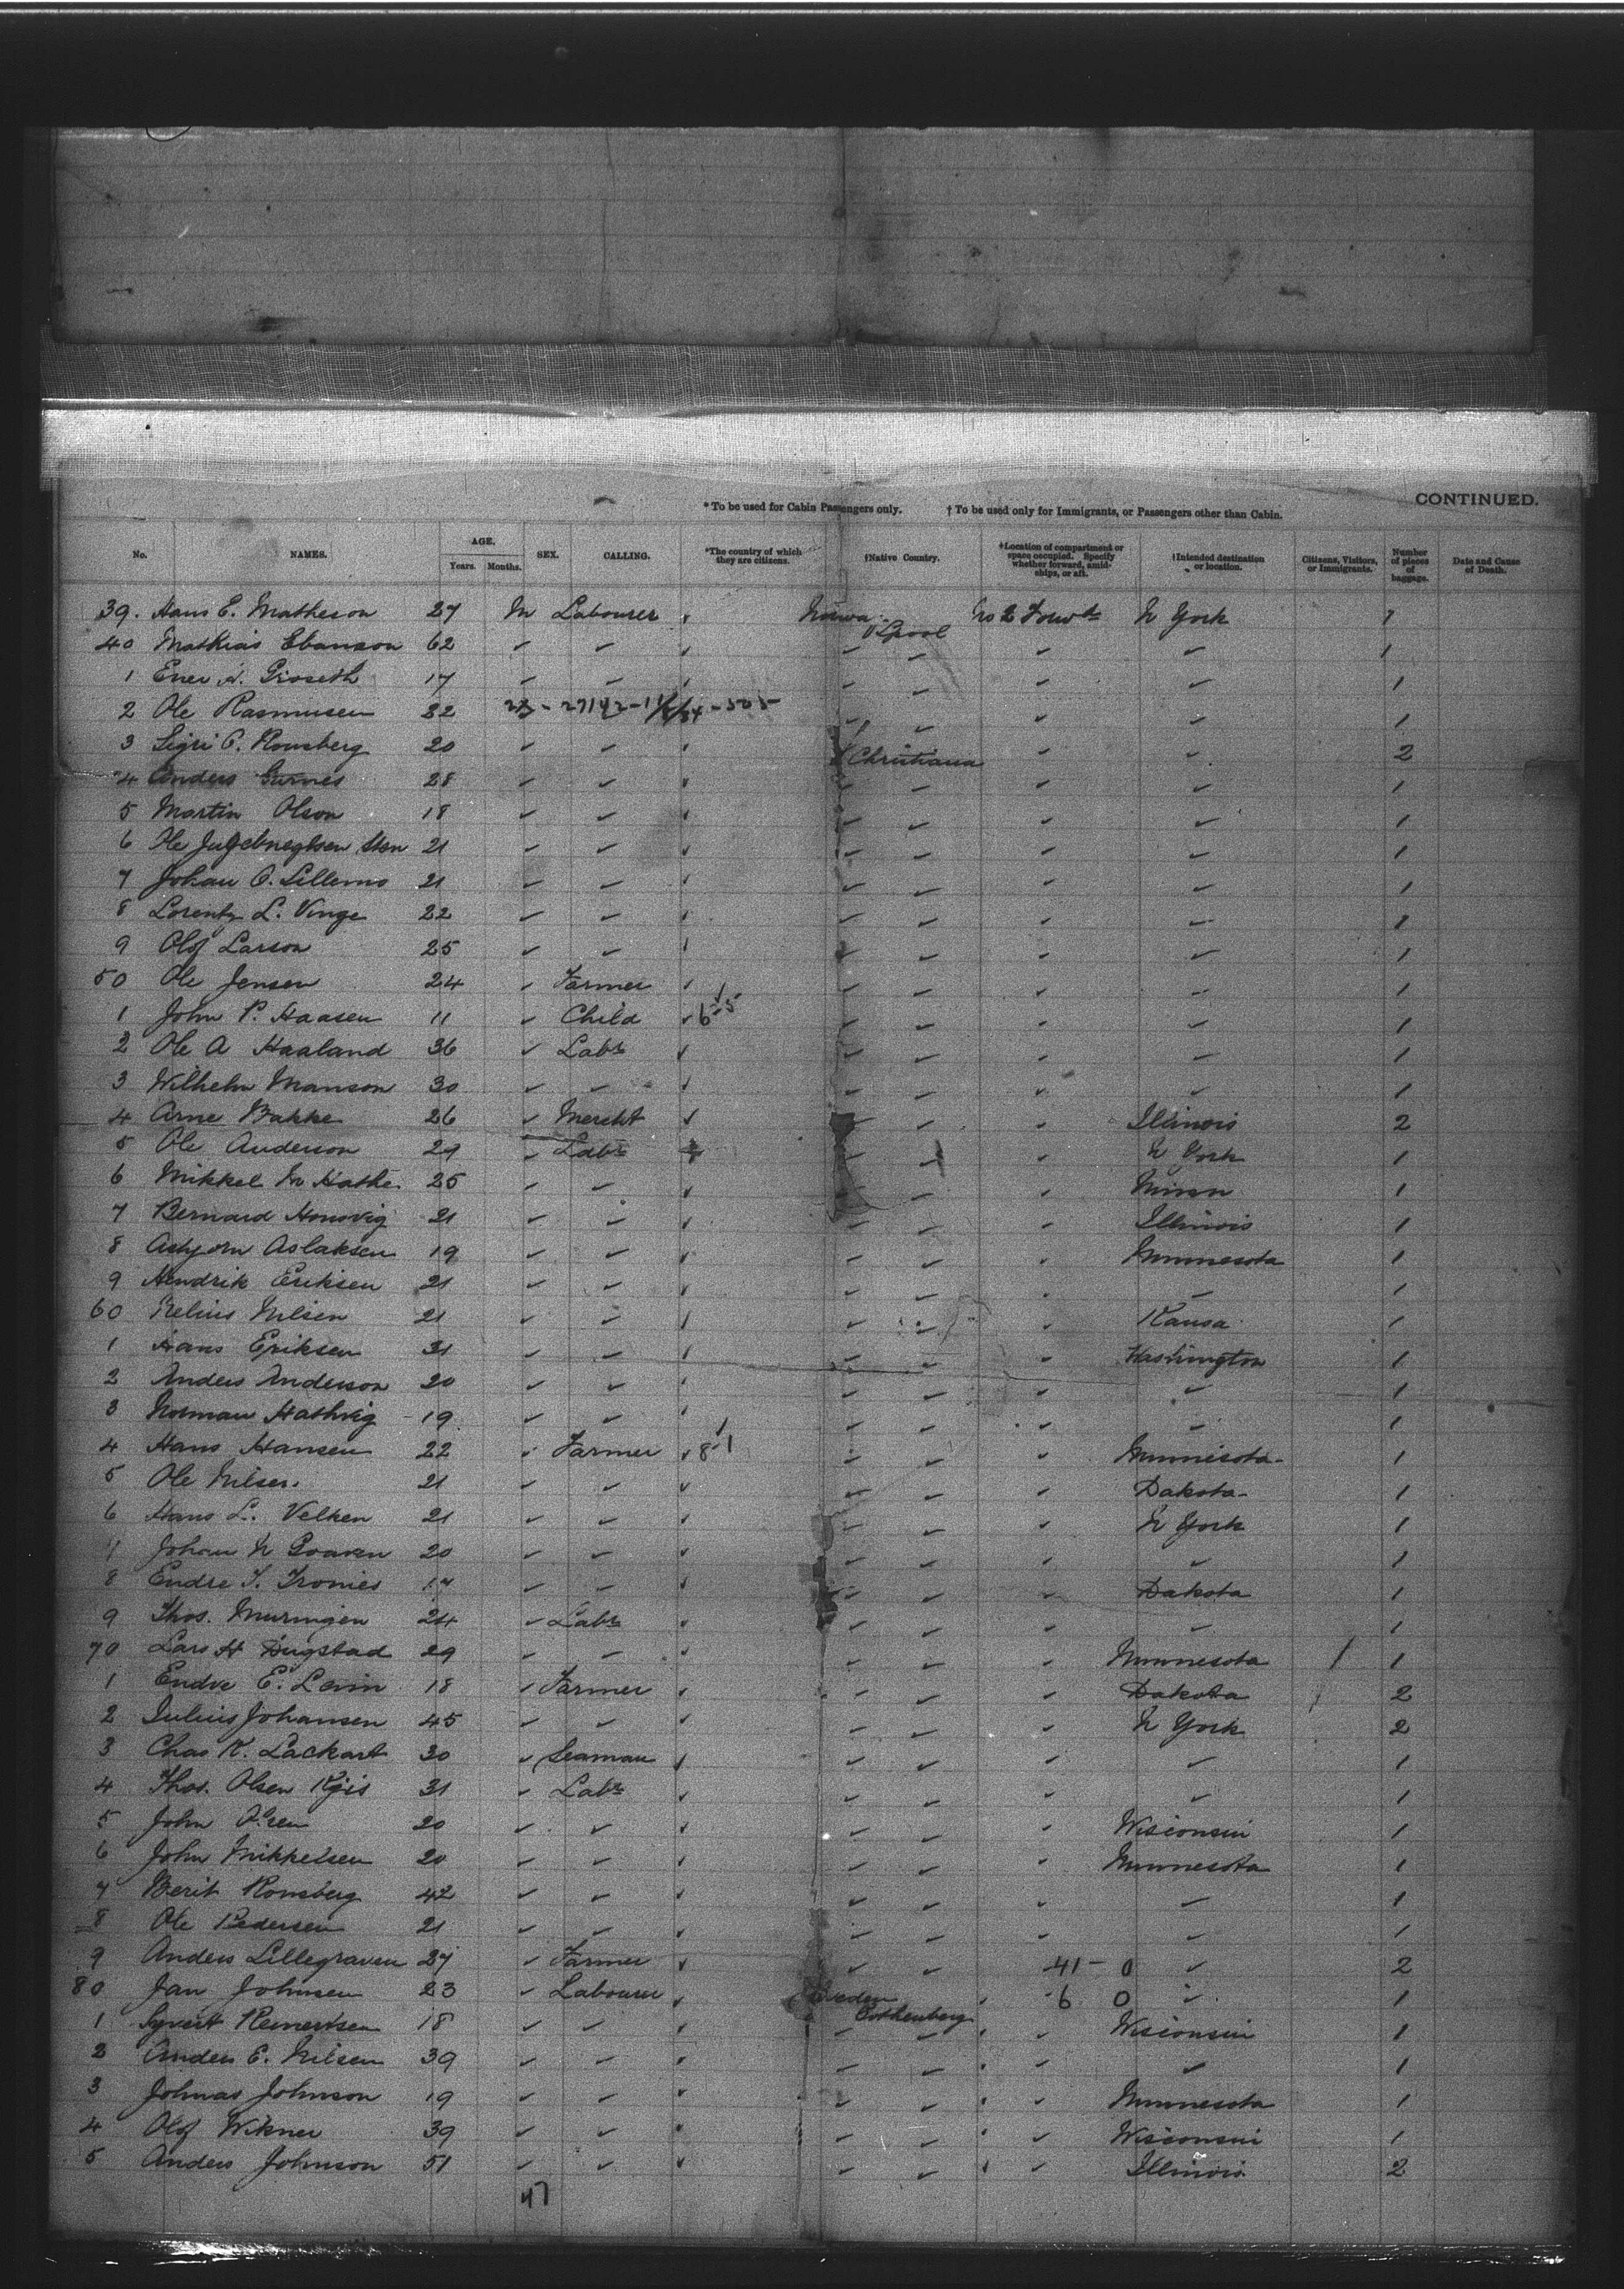 CONTINUED.
*To be used for Cabin Passengers only. †To be used only for Immigrants, or Passengers other than Cabin.
No. NAMES. AGE. Years. Months. SEX. CALLING. *The country of which they are citizens. †Native Country. †Location of compartment or space occupied. Specify whether forward, amidships, or aft. †Intended destination or location. Citizens, Visitors, or Immigrants. Number of pieces of baggage. Date and Cause of Death.
39. Hans E. Matheson 27 M Labourer No 2 Forwd N York 1
40 Mathias Ebanson 62 ✓ ✓ ✓ ✓ ✓ ✓ 1
1 17 ✓ ✓ ✓ ✓ ✓ ✓ 1
2 Ole Rasmusen 22 ✓ ✓ ✓ ✓ 1
3 Sigri O. Ronsberg 20 ✓ ✓ Christiana ✓ ✓ 2
4 Anders 28 ✓ ✓ ✓ ✓ ✓ ✓ 1
5 Martin Olson 18 ✓ ✓ ✓ ✓ ✓ ✓ 1
6 Ole 21 ✓ ✓ ✓ ✓ ✓ ✓ 1
7 Johan O. Lillemo 21 ✓ ✓ ✓ ✓ ✓ ✓ 1
8 Lorentz L. Vinge 22 ✓ ✓ ✓ ✓ ✓ ✓ 1
9 Olof Larson 25 ✓ ✓ ✓ ✓ ✓ ✓ 1
50 Ole Jensen 24 ✓ Farmer ✓ ✓ ✓ ✓ 1
1 John P. Haasen 11 ✓ Child ✓ ✓ ✓ ✓ ✓ 1
2 Ole A Haaland 36 ✓ Labr ✓ ✓ ✓ ✓ ✓ 1
3 Wilhelm Manson 30 ✓ ✓ ✓ ✓ ✓ ✓ ✓ 1
4 Arne Bakke 26 ✓ Mercht ✓ ✓ ✓ ✓ Illinois 2
5 Ole Anderson 29 ✓ Labr ✓ ✓ ✓ N York 1
6 Mikkel M Hathe 25 ✓ ✓ ✓ ✓ ✓ ✓ Minn 1
7 Bernard Honsvig 21 ✓ ✓ ✓ ✓ ✓ ✓ Illinois 1
8 Asbjorn Aslaksen 19 ✓ ✓ ✓ ✓ ✓ ✓ Minnesota 1
9 Hendrik Eriksen 21 ✓ ✓ ✓ ✓ ✓ ✓ ✓ 1
60 Nilsen 21 ✓ ✓ ✓ ✓ ✓ ✓ Kansa 1
1 Hans Eriksen 31 ✓ ✓ ✓ ✓ ✓ ✓ Washington 1
2 Anders Anderson 20 ✓ ✓ ✓ ✓ ✓ ✓ 1
3 Norman Hathvig 19 ✓ ✓ ✓ ✓ ✓ ✓ 1
4 Hans Hansen 22 ✓ Farmer ✓ ✓ ✓ ✓ Minnisota 1
5 Ole Nilsen 21 ✓ ✓ ✓ ✓ ✓ ✓ Dakota 1
6 Hans L. Velken 21 ✓ ✓ ✓ ✓ ✓ ✓ N York 1
7 Johan N 20 ✓ ✓ ✓ ✓ ✓ ✓ ✓ 1
8 Endre T. Tronies 17 ✓ ✓ ✓ ✓ ✓ ✓ Dakota 1
9 Thos. Muringen 24 ✓ Labr ✓ ✓ ✓ ✓ ✓ 1
70 Lars H Dugstad 29 ✓ ✓ ✓ ✓ ✓ ✓ Minnesota 1
1 Endre E. 18 ✓ Farmer ✓ ✓ ✓ ✓ Dakota 2
2 Julius Johansen 45 ✓ ✓ ✓ ✓ ✓ ✓ N York 2
3 Chas K. Lackart 30 ✓ Seaman ✓ ✓ ✓ ✓ ✓ 1
4 Thos. Olsen 31 ✓ Labr ✓ ✓ ✓ ✓ ✓ 1
5 John Olsen 20 ✓ ✓ ✓ ✓ ✓ ✓ Wisconsin 1
6 John Mikkelsen 20 ✓ ✓ ✓ ✓ ✓ ✓ Minnesota 1
7 Berit Ronsberg 42 ✓ ✓ ✓ ✓ ✓ ✓ ✓ 1
8 Ole Pedersen 21 ✓ ✓ ✓ ✓ ✓ ✓ ✓ 1
9 Anders Lillegraven 27 ✓ Farmer ✓ ✓ ✓ 41 - 0 ✓ 2
80 Jan Johnsen 23 ✓ Labourer ✓ Sweden Gothenberg 6 0 ✓ 1
1 Syvert Reinertsen 18 ✓ ✓ ✓ ✓ ✓ ✓ Wisconsin 1
2 Anders E. Nilsen 39 ✓ ✓ ✓ ✓ ✓ ✓ ✓ 1
3 Johnas Johnson 19 ✓ ✓ ✓ ✓ ✓ ✓ Minnesota 1
4 Olof Wikner 39 ✓ ✓ ✓ ✓ ✓ ✓ Wisconsin 1
5 Anders Johnson 51 ✓ ✓ ✓ ✓ ✓ ✓ Illinois 2
47